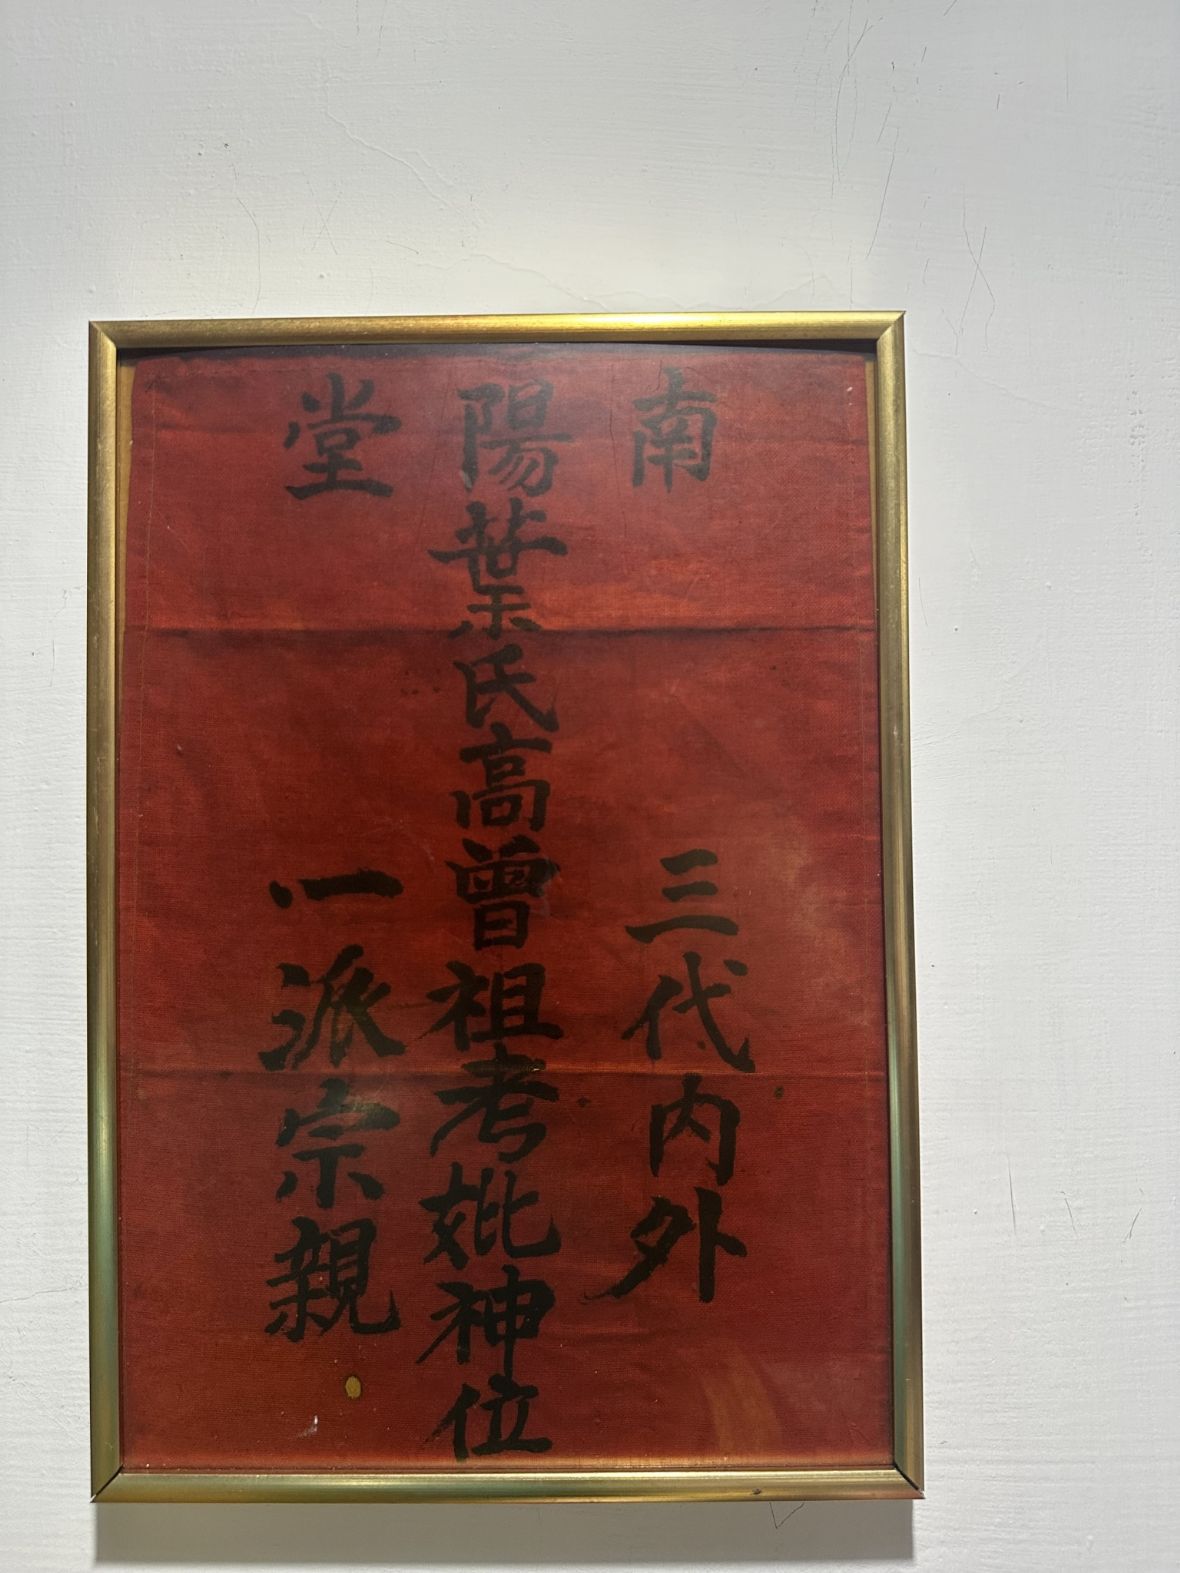 南陽堂
三代內外
葉氏高曾祖考妣神位
一派宗親